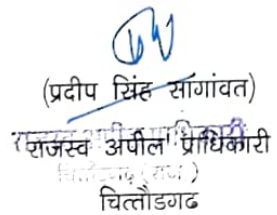 (प्रदीप सिंह सागांवत)
राजस्व अपील प्राधिकारी
चित्तौडगढ